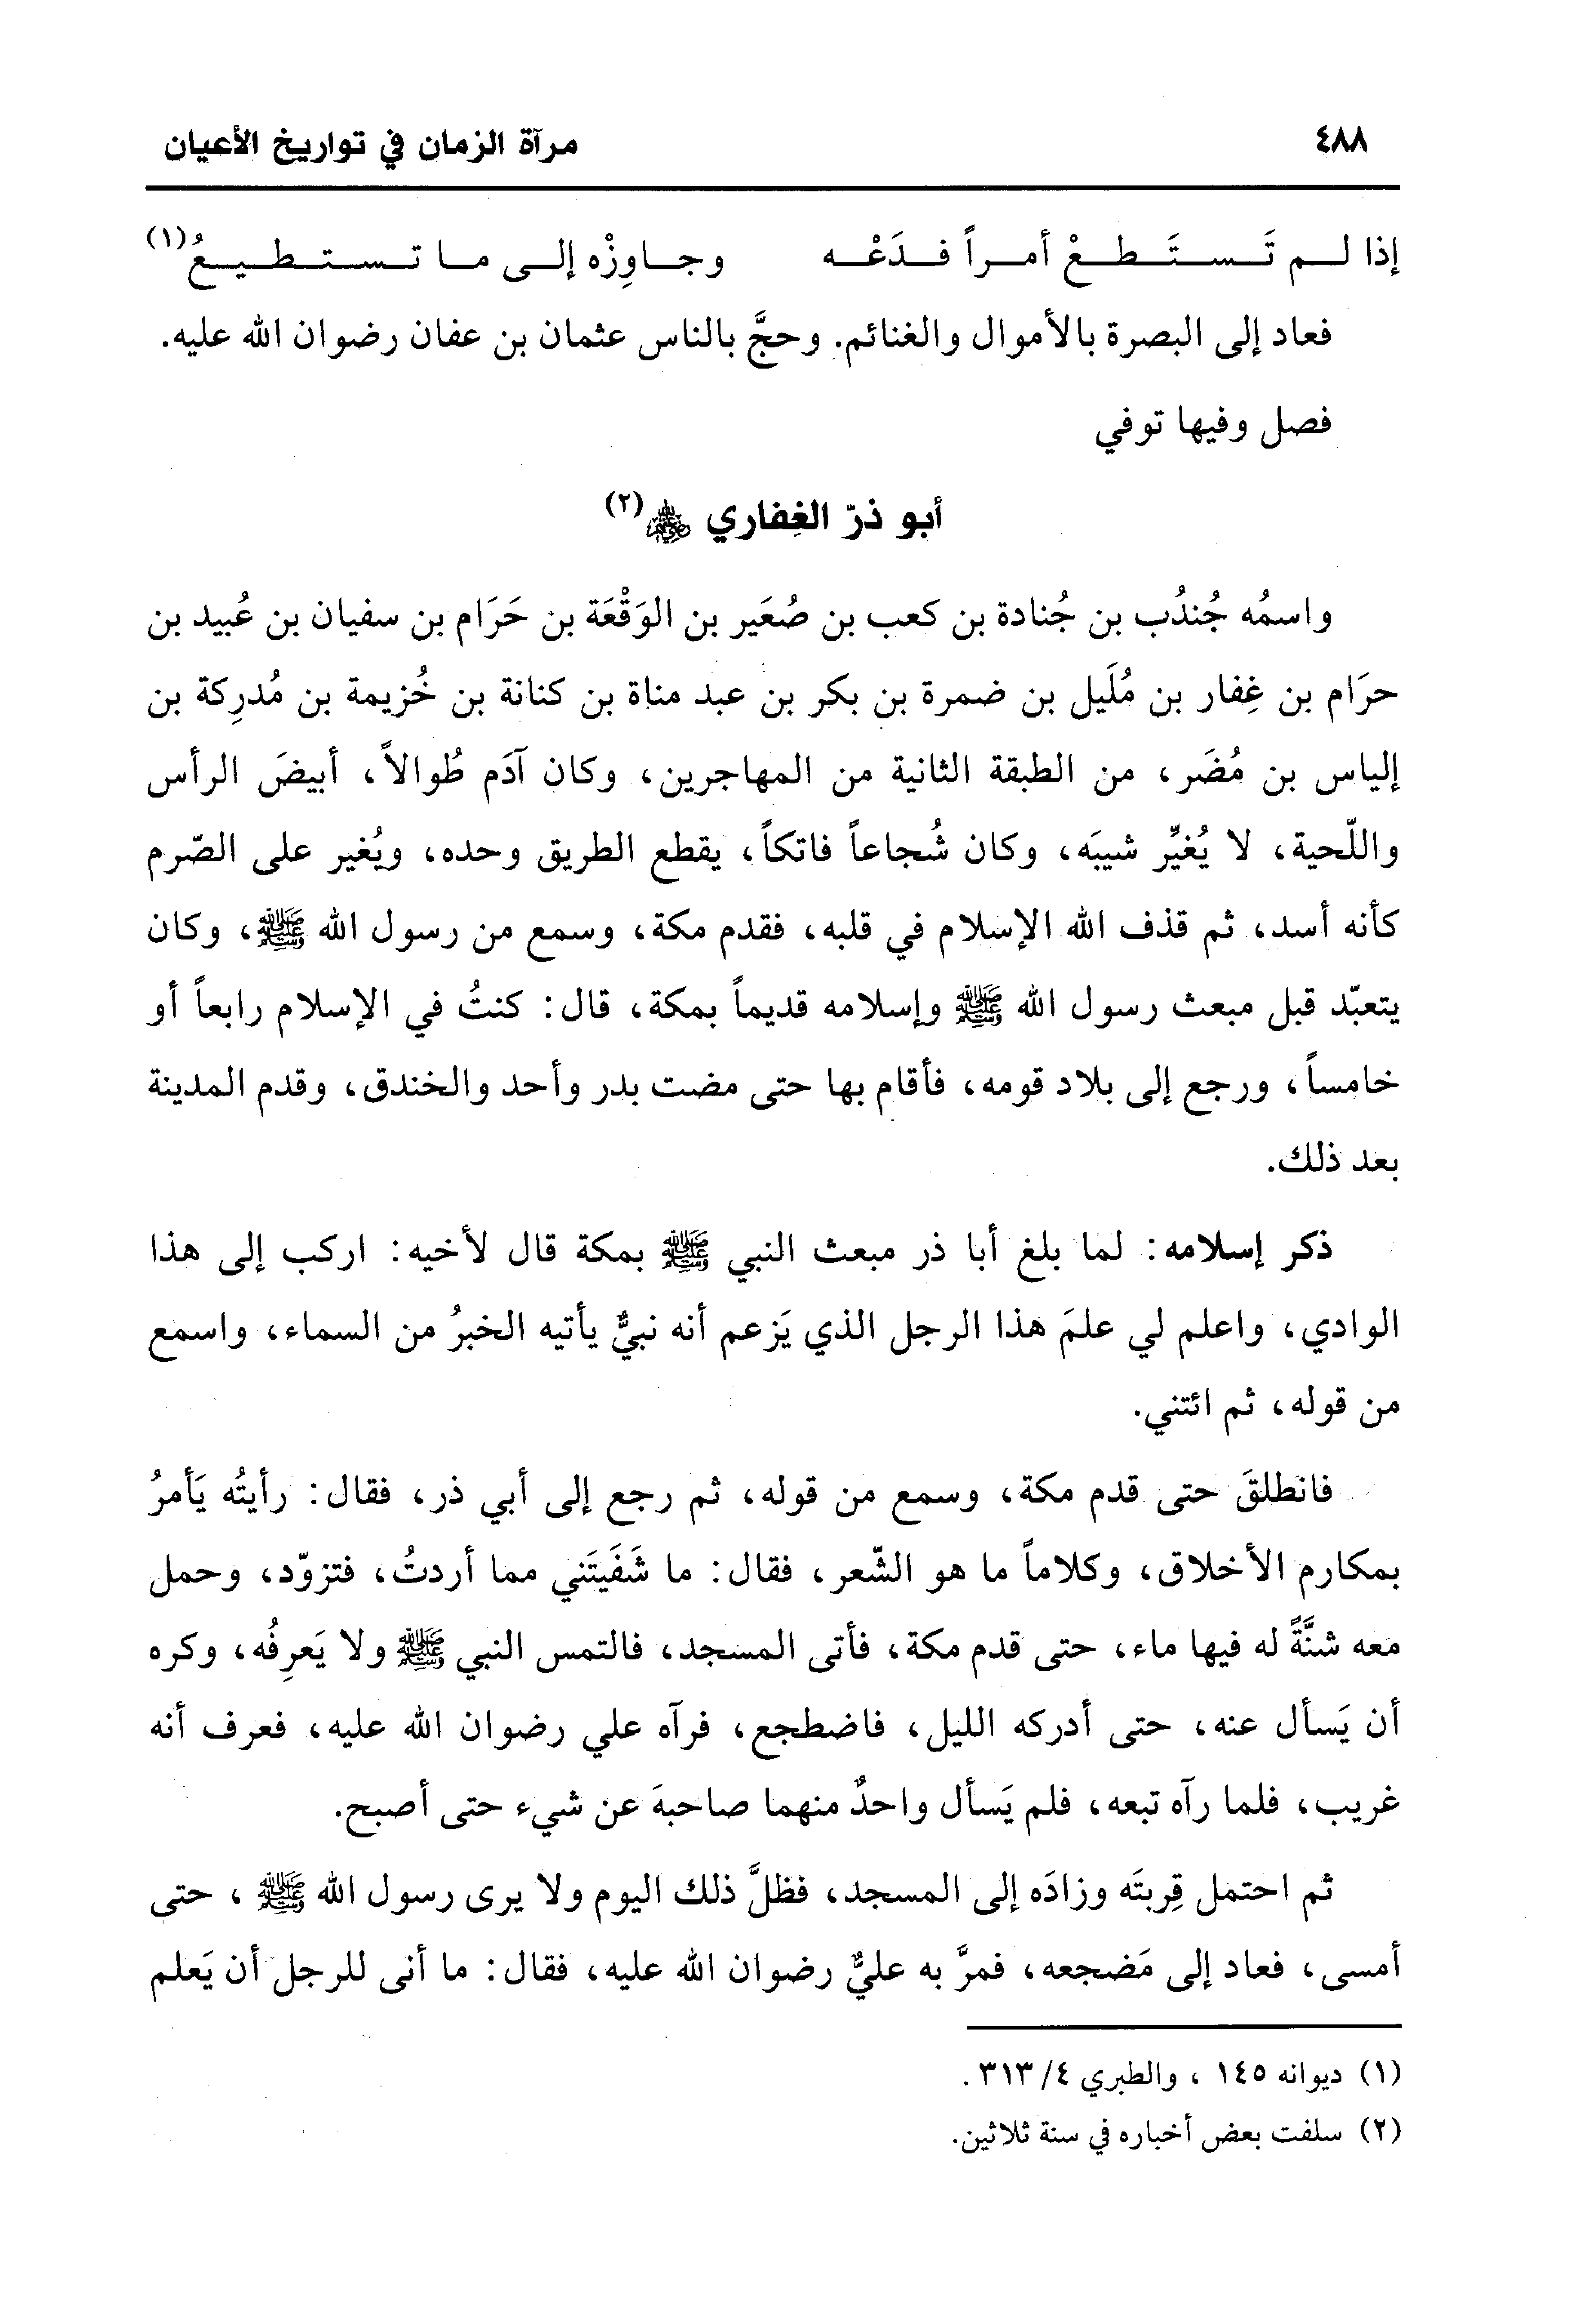 ٤٨٨ مرآة الزمان في تواريخ الأعيان
إذا لـم تَـسـتَـطـعْ أمـراً فـدَعْـه وجـاوِزْه إلـى مـا تـسـتـطـيـعُ(١)
فعاد إلى البصرة بالأموال والغنائم. وحجَّ بالناس عثمان بن عفان رضوان الله عليه.
فصل وفيها توفي
أبو ذرّ الغِفاري رضي الله عنه(٢)
واسمُه جُندُب بن جُنادة بن كعب بن صُعَير بن الوَقْعَة بن حَرَام بن سفيان بن عُبيد بن
حرَام بن غِفار بن مُلَيل بن ضمرة بن بكر بن عبد مناة بن كنانة بن خُزيمة بن مُدرِكة بن
إلياس بن مُضَر، من الطبقة الثانية من المهاجرين، وكان آدَم طُوالاً، أبيضَ الرأس
واللّحية، لا يُغيِّر شيبَه، وكان شُجاعاً فاتكاً، يقطع الطريق وحده، ويُغير على الصّرم
كأنه أسد، ثم قذف الله الإسلام في قلبه، فقدم مكة، وسمع من رسول الله ﷺ، وكان
يتعبّد قبل مبعث رسول الله ﷺ وإسلامه قديماً بمكة، قال: كنتُ في الإسلام رابعاً أو
خامساً، ورجع إلى بلاد قومه، فأقام بها حتى مضت بدر وأحد والخندق، وقدم المدينة
بعد ذلك.
ذكر إسلامه: لما بلغ أبا ذر مبعث النبي ﷺ بمكة قال لأخيه: اركب إلى هذا
الوادي، واعلم لي علمَ هذا الرجل الذي يَزعم أنه نبيٌّ يأتيه الخبرُ من السماء، واسمع
من قوله، ثم ائتني.
فانطلقَ حتى قدم مكة، وسمع من قوله، ثم رجع إلى أبي ذر، فقال: رأيتُه يَأمرُ
بمكارم الأخلاق، وكلاماً ما هو الشّعر، فقال: ما شَفَيتَني مما أردتُ، فتزوّد، وحمل
معه شنَّةً له فيها ماء، حتى قدم مكة، فأتى المسجد، فالتمس النبي ﷺ ولا يَعرِفُه، وكره
أن يَسأل عنه، حتى أدركه الليل، فاضطجع، فرآه علي رضوان الله عليه، فعرف أنه
غريب، فلما رآه تبعه، فلم يَسأل واحدٌ منهما صاحبهَ عن شيء حتى أصبح.
ثم احتمل قِربتَه وزادَه إلى المسجد، فظلَّ ذلك اليوم ولا يرى رسول الله ﷺ ، حتى
أمسى، فعاد إلى مَضجعه، فمرَّ به عليٌّ رضوان الله عليه، فقال: ما أنى للرجل أن يَعلم
(١) ديوانه ١٤٥ ، والطبري ٤/ ٣١٣ .
(٢) سلفت بعض أخباره في سنة ثلاثين.